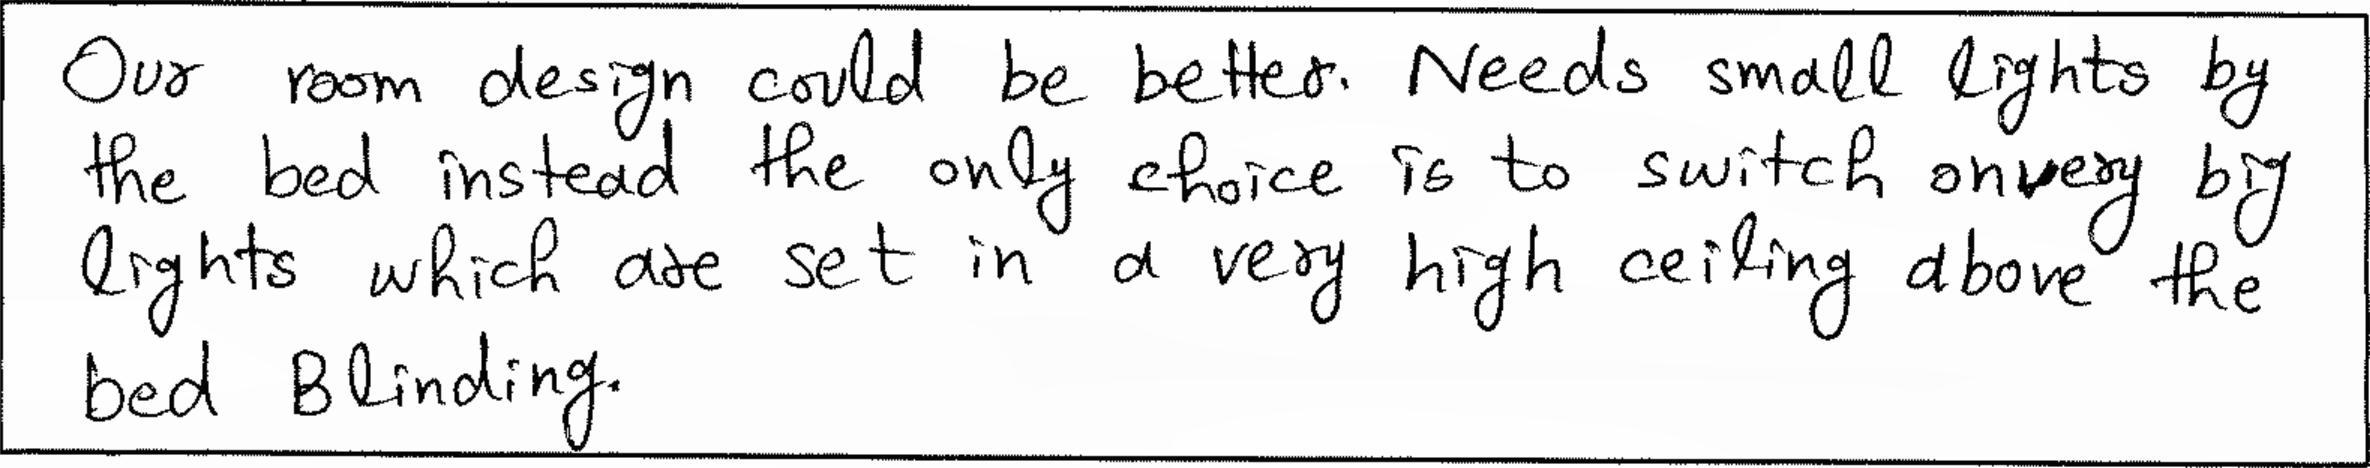 Our room design could be better. Needs small lights by
the bed instead the only choice is to switch onvery big
lights which are set in a very high ceiling above the
bed Blinding.